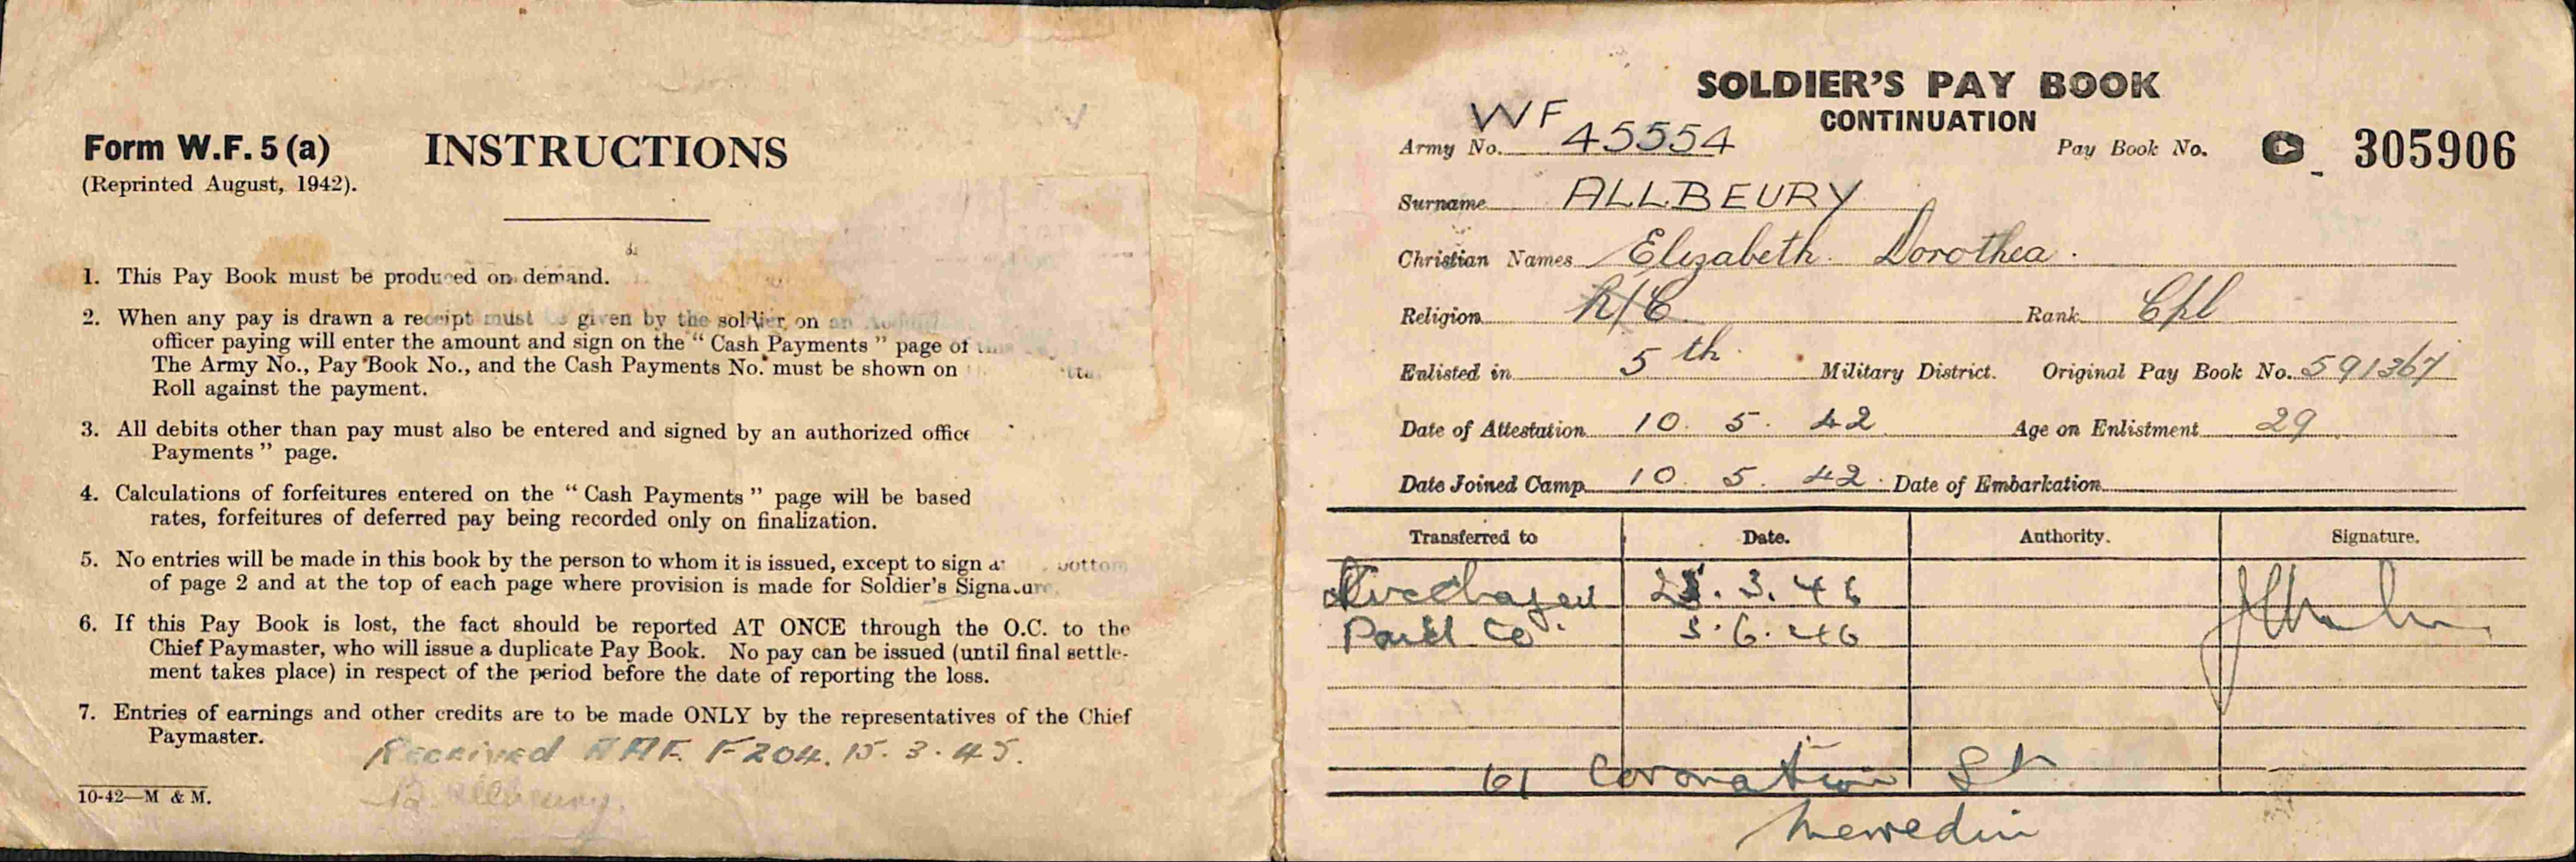 Form W.F. 5 (a) INSTRUCTIONS
(Reprinted August, 1942).
1. This Pay Book must be produced on demand.
2. When any pay is drawn a receipt must be given by the soldier, on an
officer paying will enter the amount and sign on the “ Cash Payments ” page of this
The Army No., Pay Book No., and the Cash Payments No. must be shown on
Roll against the payment.
3. All debits other than pay must also be entered and signed by an authorized office
Payments ” page.
4. Calculations of forfeitures entered on the “ Cash Payments ” page will be based
rates, forfeitures of deferred pay being recorded only on finalization.
5. No entries will be made in this book by the person to whom it is issued, except to sign at bottom
of page 2 and at the top of each page where provision is made for Soldier's Signature.
6. If this Pay Book is lost, the fact should be reported AT ONCE through the O.C. to the
Chief Paymaster, who will issue a duplicate Pay Book. No pay can be issued (until final settle-
ment takes place) in respect of the period before the date of reporting the loss.
7. Entries of earnings and other credits are to be made ONLY by the representatives of the Chief
Paymaster.
Received AAF. F204. 15.3.45.
Allbeury.
10-42—M & M.
SOLDIER'S PAY BOOK
CONTINUATION
Army No. WF 45554 Pay Book No. C 305906
Surname ALLBEURY
Christian Names Elizabeth Dorothea.
Religion R/C Rank Cpl
Enlisted in 5th Military District. Original Pay Book No. 591367
Date of Attestation 10. 5. 42 Age on Enlistment 29
Date Joined Camp 10. 5. 42. Date of Embarkation
Transferred to Date. Authority. Signature.
3. 46
Paid to 3.6.46
61 Coronation St
Merredin